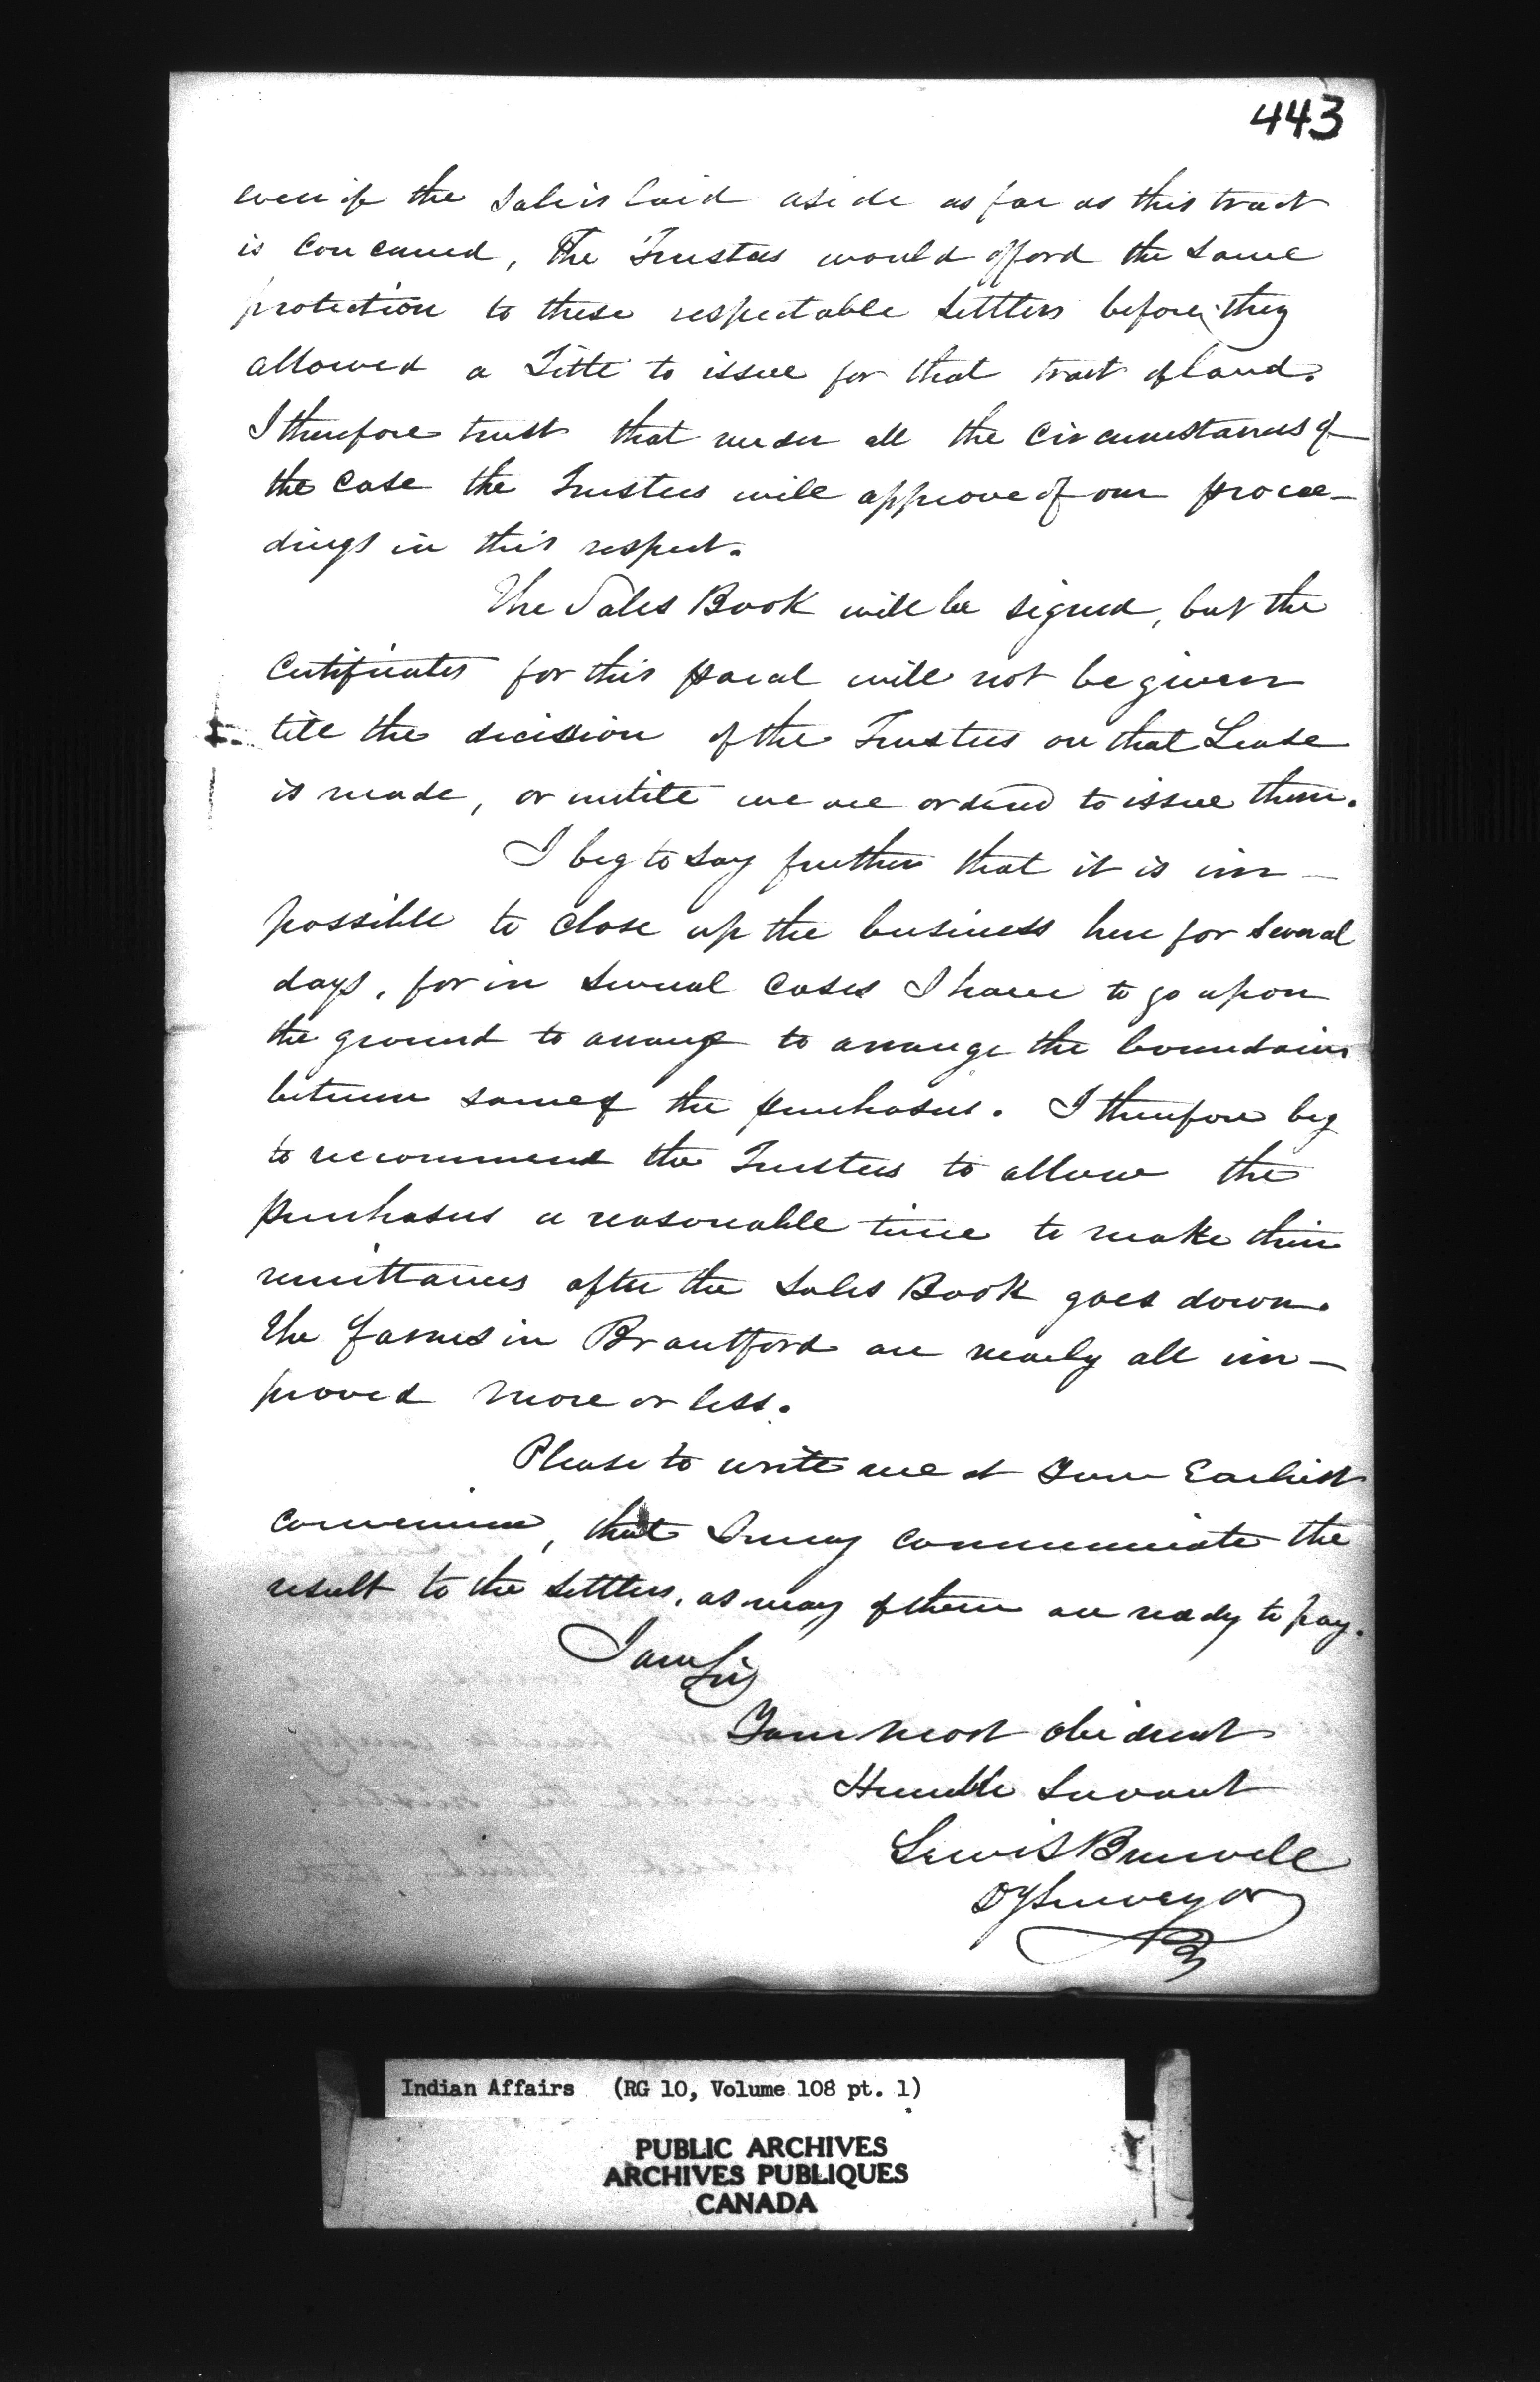 443
even if the Sale is laid aside as far as this tract
is concerned, The Trustees would afford the same
protection to these respectable settlers before they
allowed a Title to issue for that tract of land.
I therefore trust that under all the circumstances of
the case the Trustees will approve of our procee-
dings in this respect.
The Sales Book will be signed, but the
Certificates for this parcel will not be given
till the decision of the Trustees on that Lease
is made, or untill we are ordered to issue them.
I beg to say further that it is im-
possible to close up the business here for several
days, for in several cases I have to go upon
the ground to arrange to arrange the boundaries
between some of the purchasers. I therefore beg
to recommend the Trustees to allow the
purchasers a reasonable time to make their
remittances after the Sales Book goes down.
The farms in Brantford are nearly all im-
proved more or less.
Please to write me at your Earliest
convenience, that I may communicate the
result to the settlers, as many of them are ready to pay.
I am Sir
Your most obedient
Humble Servant
Lewis Burwell
Dy Surveyor
Indian Affairs (RG 10, Volume 108 pt. 1)
PUBLIC ARCHIVES
ARCHIVES PUBLIQUES
CANADA